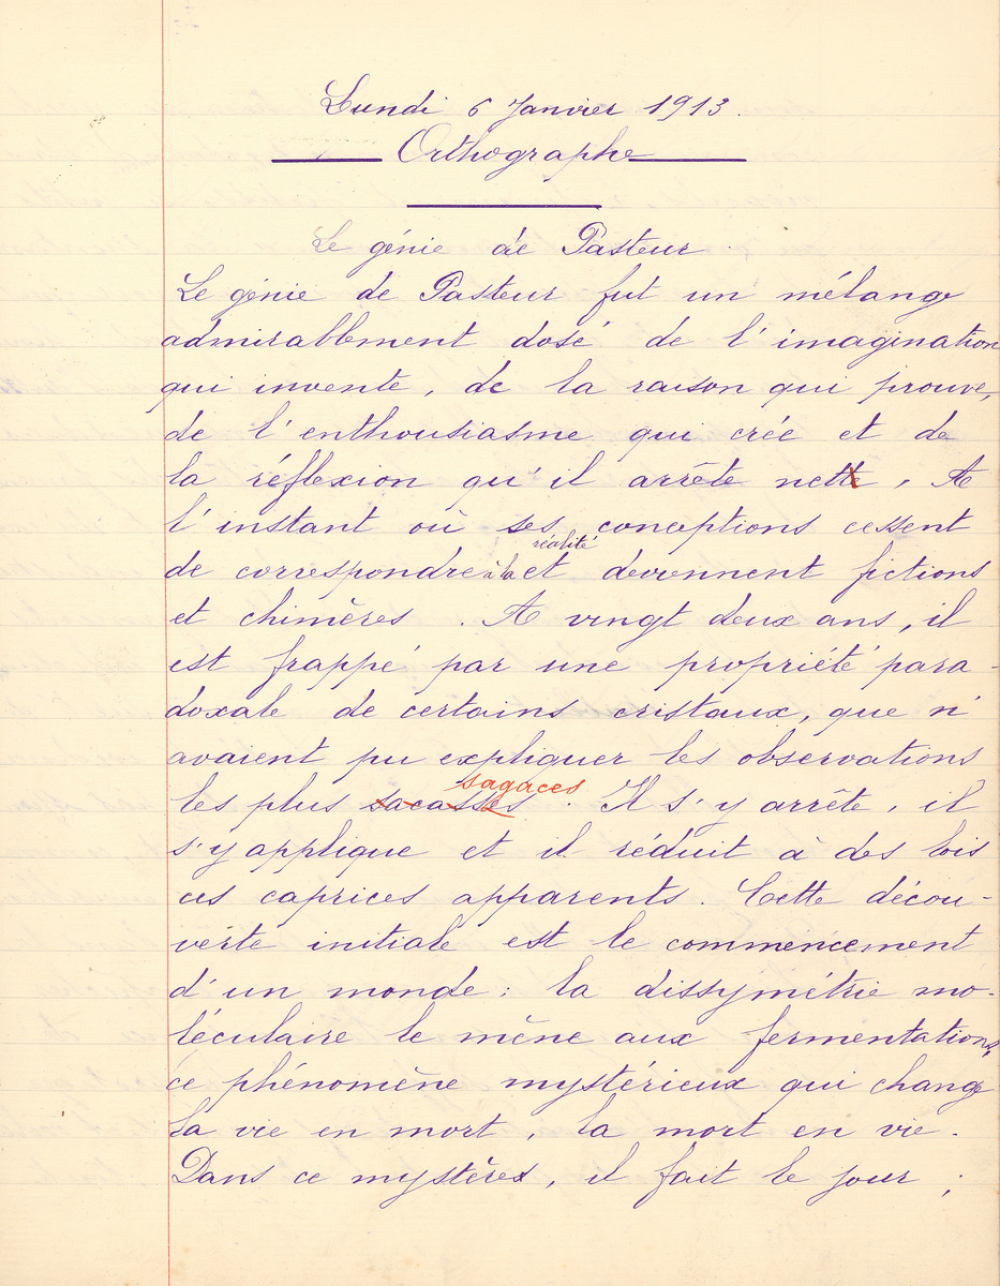 Lundi 6 Janvier 1913.
Orthographe
Le génie de Pasteur
Le génie de Pasteur fut un mélange
admirablement dosé de l'imagination
qui invente, de la raison qui prouve,
de l'enthousiasme qui crée et de
la réflexion qu'il arrête nette, A
l'instant où ses conceptions cessent
de correspondre à la réalité et deviennent fictions
et chimères. A vingt deux ans, il
est frappé par une propriété para-
doxale de certains cristaux, que n'
avaient pu expliquer les observations
les plus sacasses sagaces. Il s'y arrête, il
s'y applique et il réduit à des lois
ces caprices apparents. Cette décou-
verte initiale est le commencement
d'un monde : la dissymétrie mo-
léculaire le mène aux fermentations,
ce phénomène mystérieux qui change
la vie en mort, la mort en vie.
Dans ce mystères, il fait le jour ;